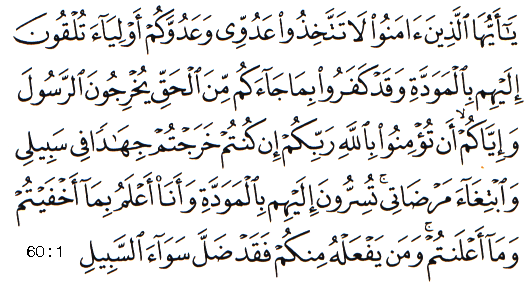 يَـٰٓأَيُّهَا ٱلَّذِينَ ءَامَنُوا۟ لَا تَتَّخِذُوا۟ عَدُوِّى وَعَدُوَّكُمْ أَوْلِيَآءَ تُلْقُونَ
إِلَيْهِم بِٱلْمَوَدَّةِ وَقَدْ كَفَرُوا۟ بِمَا جَآءَكُم مِّنَ ٱلْحَقِّ يُخْرِجُونَ ٱلرَّسُولَ
وَإِيَّاكُمْ ۙ أَن تُؤْمِنُوا۟ بِٱللَّهِ رَبِّكُمْ إِن كُنتُمْ خَرَجْتُمْ جِهَـٰدًا فِى سَبِيلِى
وَٱبْتِغَآءَ مَرْضَاتِى ۚ تُسِرُّونَ إِلَيْهِم بِٱلْمَوَدَّةِ وَأَنَا۠ أَعْلَمُ بِمَآ أَخْفَيْتُمْ
وَمَآ أَعْلَنتُمْ ۚ وَمَن يَفْعَلْهُ مِنكُمْ فَقَدْ ضَلَّ سَوَآءَ ٱلسَّبِيلِ 60:1